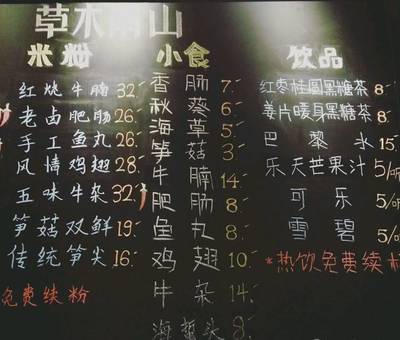 草木南山
米粉
红烧牛腩 32.-
老卤肥肠 26.-
手工鱼丸 26.-
风情鸡翅 28.-
五味牛杂 32.-
笋菇双鲜 19.-
传统笋尖 16.-
免费续粉
小食
香肠 7.-
秋葵 6.-
海草 5.-
笋菇 3.-
牛腩 14.-
肥肠 8.-
鱼丸 8.-
鸡翅 10.-
牛杂 14.-
海蜇头 8.-
饮品
红枣桂圆黑糖茶 8
姜片暖身黑糖茶 8
巴黎水 15
乐天芒果汁 5/
可乐 5/
雪碧 5/
*热饮免费续杯